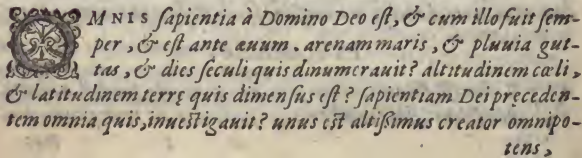 OMNIS sapientia à Domino Deo est, & cum illo fuit sem-
per, & est ante æuum. arenam maris, & pluuiæ gut-
tas, & dies seculi quis dinumerauit? altitudinem cœli,
& latitudinem terrę quis dimensus est? sapientiam Dei pręceden-
tem omnia quis, inuestigauit? unus est altissimus creator omnipo-
tens,